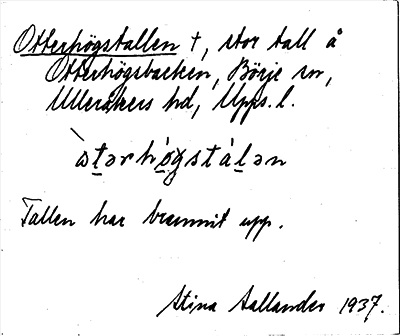 Otterhögstallen †, stor tall å
Otterhögsbacken, Börje sn,
Ulleråkers hd, Upps. l.
ằtərhö̀gstálən
Tallen har brunnit upp.
Stina Sallander 1937.